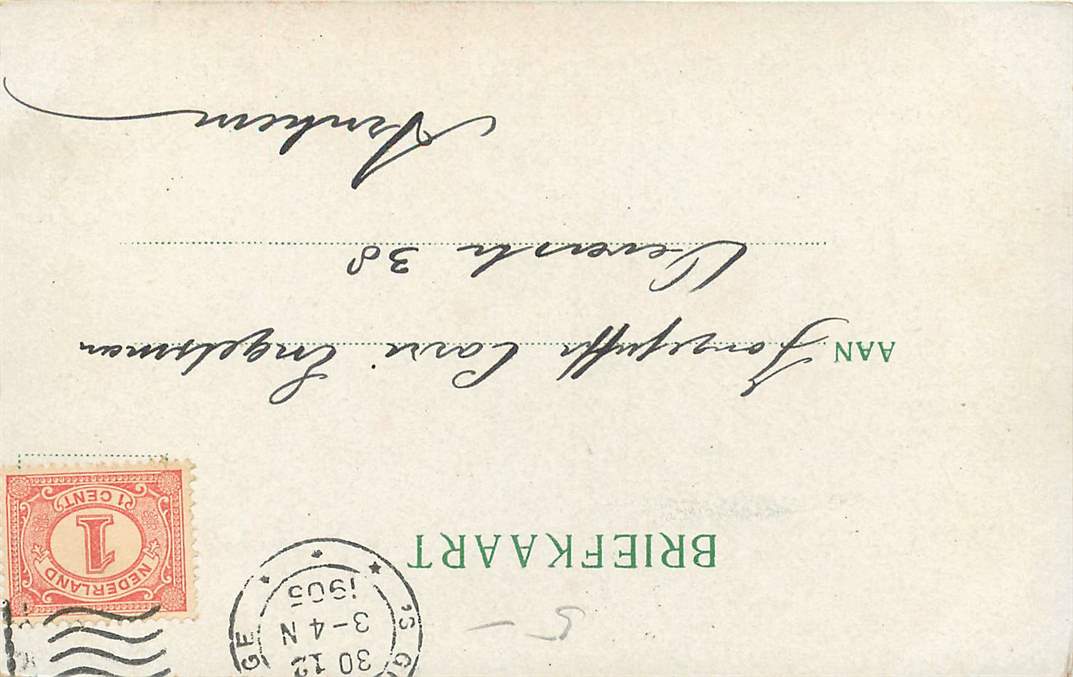 5-
'S G GE
30 12
3-4 N
1905
NEDERLAND
1
1 CENT
BRIEFKAART
AAN Jongejuffr Corri Engelsman
Oeverstr 38
Arnhem